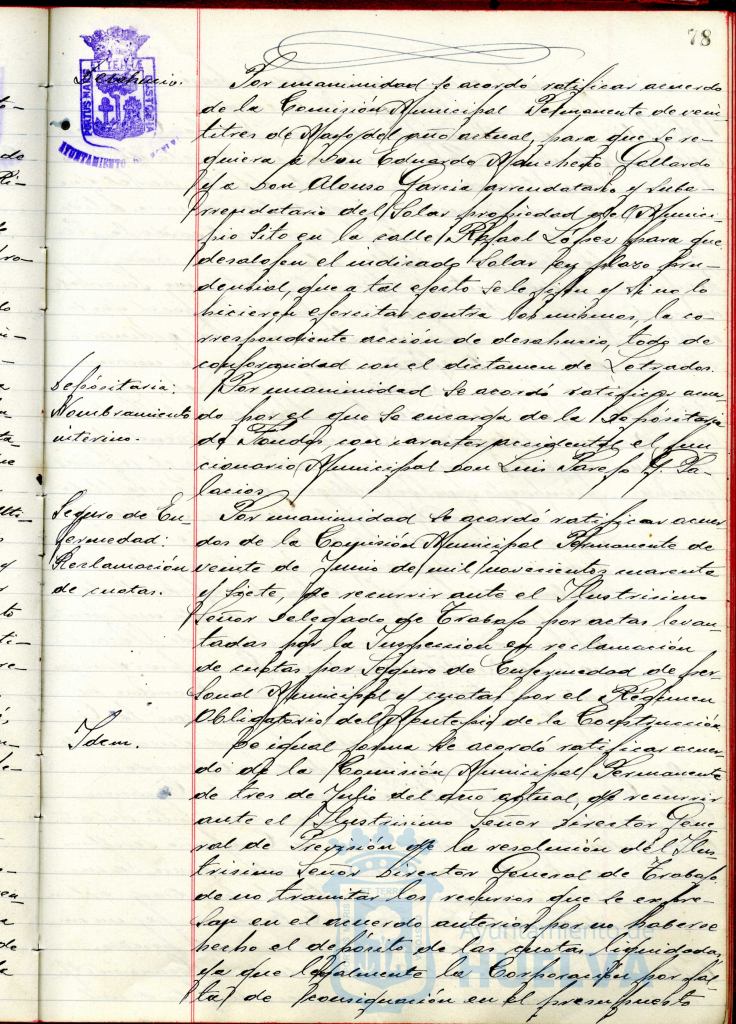 78
PORTUS MARIS ET TERRAE CUSTODIA
AYUNTAMIENTO DE HUELVA
Desahucio.
Por unanimidad se acordó ratificar acuerdo
de la Comisión Municipal Permanente de vein-
titres de Mayo del año actual, para que se re-
quiera a Don Eduardo Mancheño Gallardo
y a Don Alonso Garcia arrendatario y suba-
rrendatario del Solar propiedad del Munici-
pio Sito en la calle Rafael López para que
desalojen el indicado Solar en plazo pru-
dencial, que a tal efecto se le fijen y si no lo
hicieren ejercitar contra los mismos, la co-
rrespondiente acción de desahucio, todo de
conformidad con el dictamen de Letrados.
Depósitaria:
Nombramiento
interino.
Por unanimidad se acordó ratificar acuer-
do por el que se encarga de la Depósitaria
de Fondos con caracter accidental el fun-
cionario Municipal don Luis Parejo G. Pa-
lacios.
Seguro de En-
fermedad:
Reclamación
de cuotas.
Por unanimidad se acordó ratificar acuer-
dos de la Comisión Municipal Permanente de
veinte de Junio de mil novecientos cuarenta
y siete, de recurrir ante el Ilustrisimo
Señor Delegado de Trabajo por actas levan-
tadas por la Inspección en reclamación
de cuotas por Seguro de Enfermedad de per-
sonal Municipal y cuotas por el Régimen
Obligatorio del Montepio de la Construcción.
Idem.
De igual forma se acordó ratificar acuer-
do de la Comisión Municipal Permanente
de tres de Julio del año actual, de recurrir
ante el Ilustrisimo Señor Director Gene-
ral de Previsión de la resolución del Ilus-
trisimo Señor Director General de Trabajo
de no tramitar los recursos que se expre-
san en el acuerdo anterior, por no haberse
hecho el depósito de las cuotas liquidadas,
ya que legalmente la Corporación por fal-
ta de consignación en el presupuesto
Ayuntamiento de
HUELVA